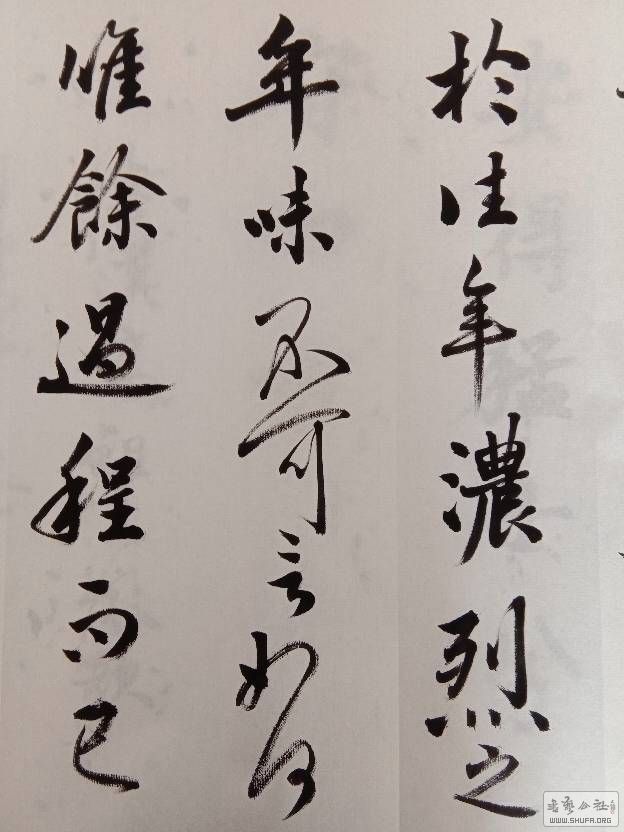 於往年濃烈之
年味不可言如何
唯餘過程而已
書藝公社
WWW.SHUFA.ORG